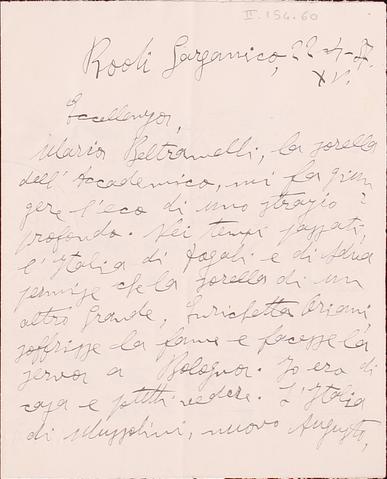 II.154.60
Rodi Garganico, 22-4-37.
XV.
Eccellenza,
Maria Beltramelli, la sorella
dell'Accademico, mi fa giun
gere l'eco di uno strazio
profondo. Nei tempi passati,
l'Italia di Dogali e di Adua
permise che la sorella di un
altro Grande, Enrichetta Oriani
soffrisse la fame e facesse la
serva a Bologna. Io ero di
casa e potetti vedere. L'Italia
di Mussolini, nuovo Augusto,